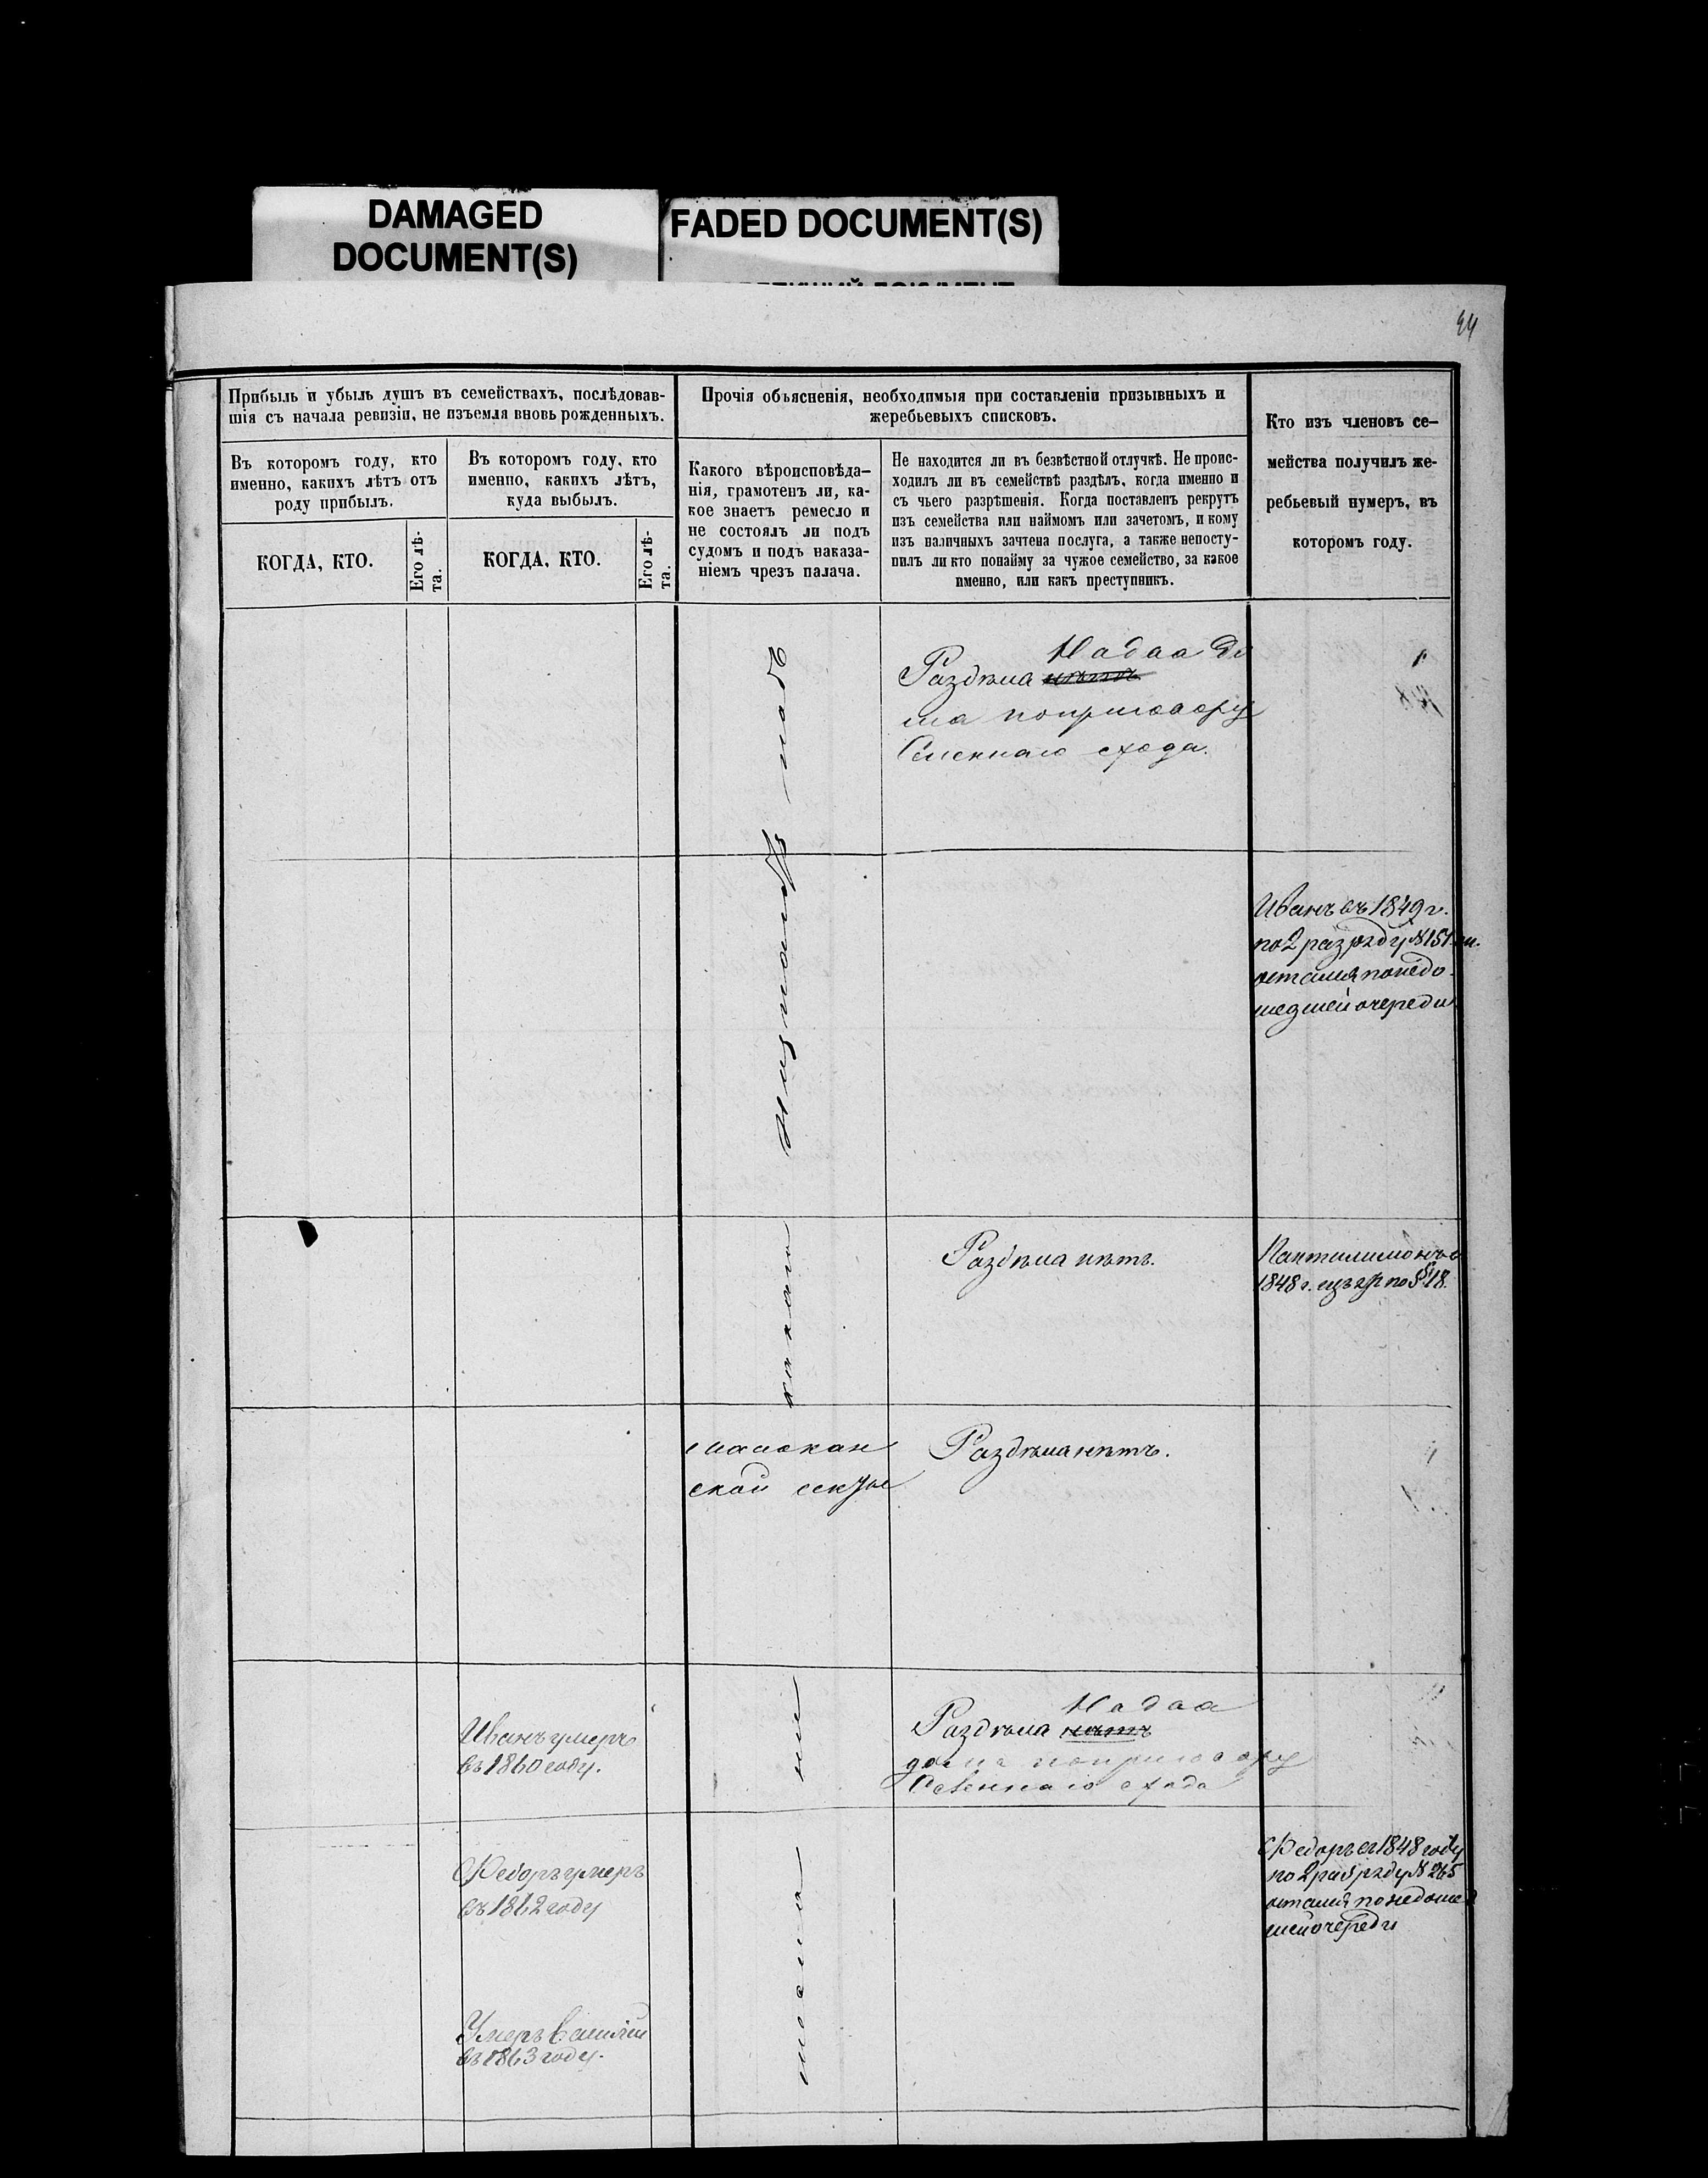 DAMAGED
DOCUMENT(S)
FADED DOCUMENT(S)
Прибыль и убыль душъ въ семействахъ, послѣдовав-
шія съ начала ревизіи, не изъемля вновь рожденныхъ.
Въ которомъ году, кто
именно, какихъ лѣтъ отъ
роду прибылъ.
КОГДА, КТО.
Его лѣ-
та.
Въ которомъ году, кто
именно, какихъ лѣтъ,
куда выбылъ.
КОГДА, КТО.
Его лѣ-
та.
Прочія объясненія, необходимыя при составленіи призывныхъ и
жеребьевыхъ списковъ.
Какого вѣроисповѣда-
нія, грамотенъ ли, ка-
кое знаетъ ремесло и
не состоялъ ли подъ
судомъ и подъ наказа-
ніемъ чрезъ палача.
Не находится ли въ безвѣстной отлучкѣ. Не проис-
ходилъ ли въ семействѣ раздѣлъ, когда именно и
съ чьего разрѣшенія. Когда поставленъ рекрутъ
изъ семейства или наймомъ или зачетомъ, и кому
изъ наличныхъ зачтена послуга, а также непосту-
пилъ ли кто понайму за чужое семейство, за какое
именно, или какъ преступникъ.
Кто изъ членовъ се-
мейства получилъ же-
ребьевый нумеръ, въ
которомъ году.
Раздѣла нѣтъ
ма поприговору
схода.
Иванъ въ 1849 г.
по 2 разряду № 151
остался понедо-
шедшей очереди
Раздѣла нѣтъ.
1848 г. по § 18.
молокан
ской секты
Раздѣла нѣтъ.
Иванъ умеръ
въ 1860 году.
Раздѣла нѣтъ
дома поприговору
схода
Федоръ умеръ
въ 1862 году
Федоръ въ 1848 году
по 2 разряду № 265
остался понедошед
шей очереди
Умеръ Василій
въ 1863 году.